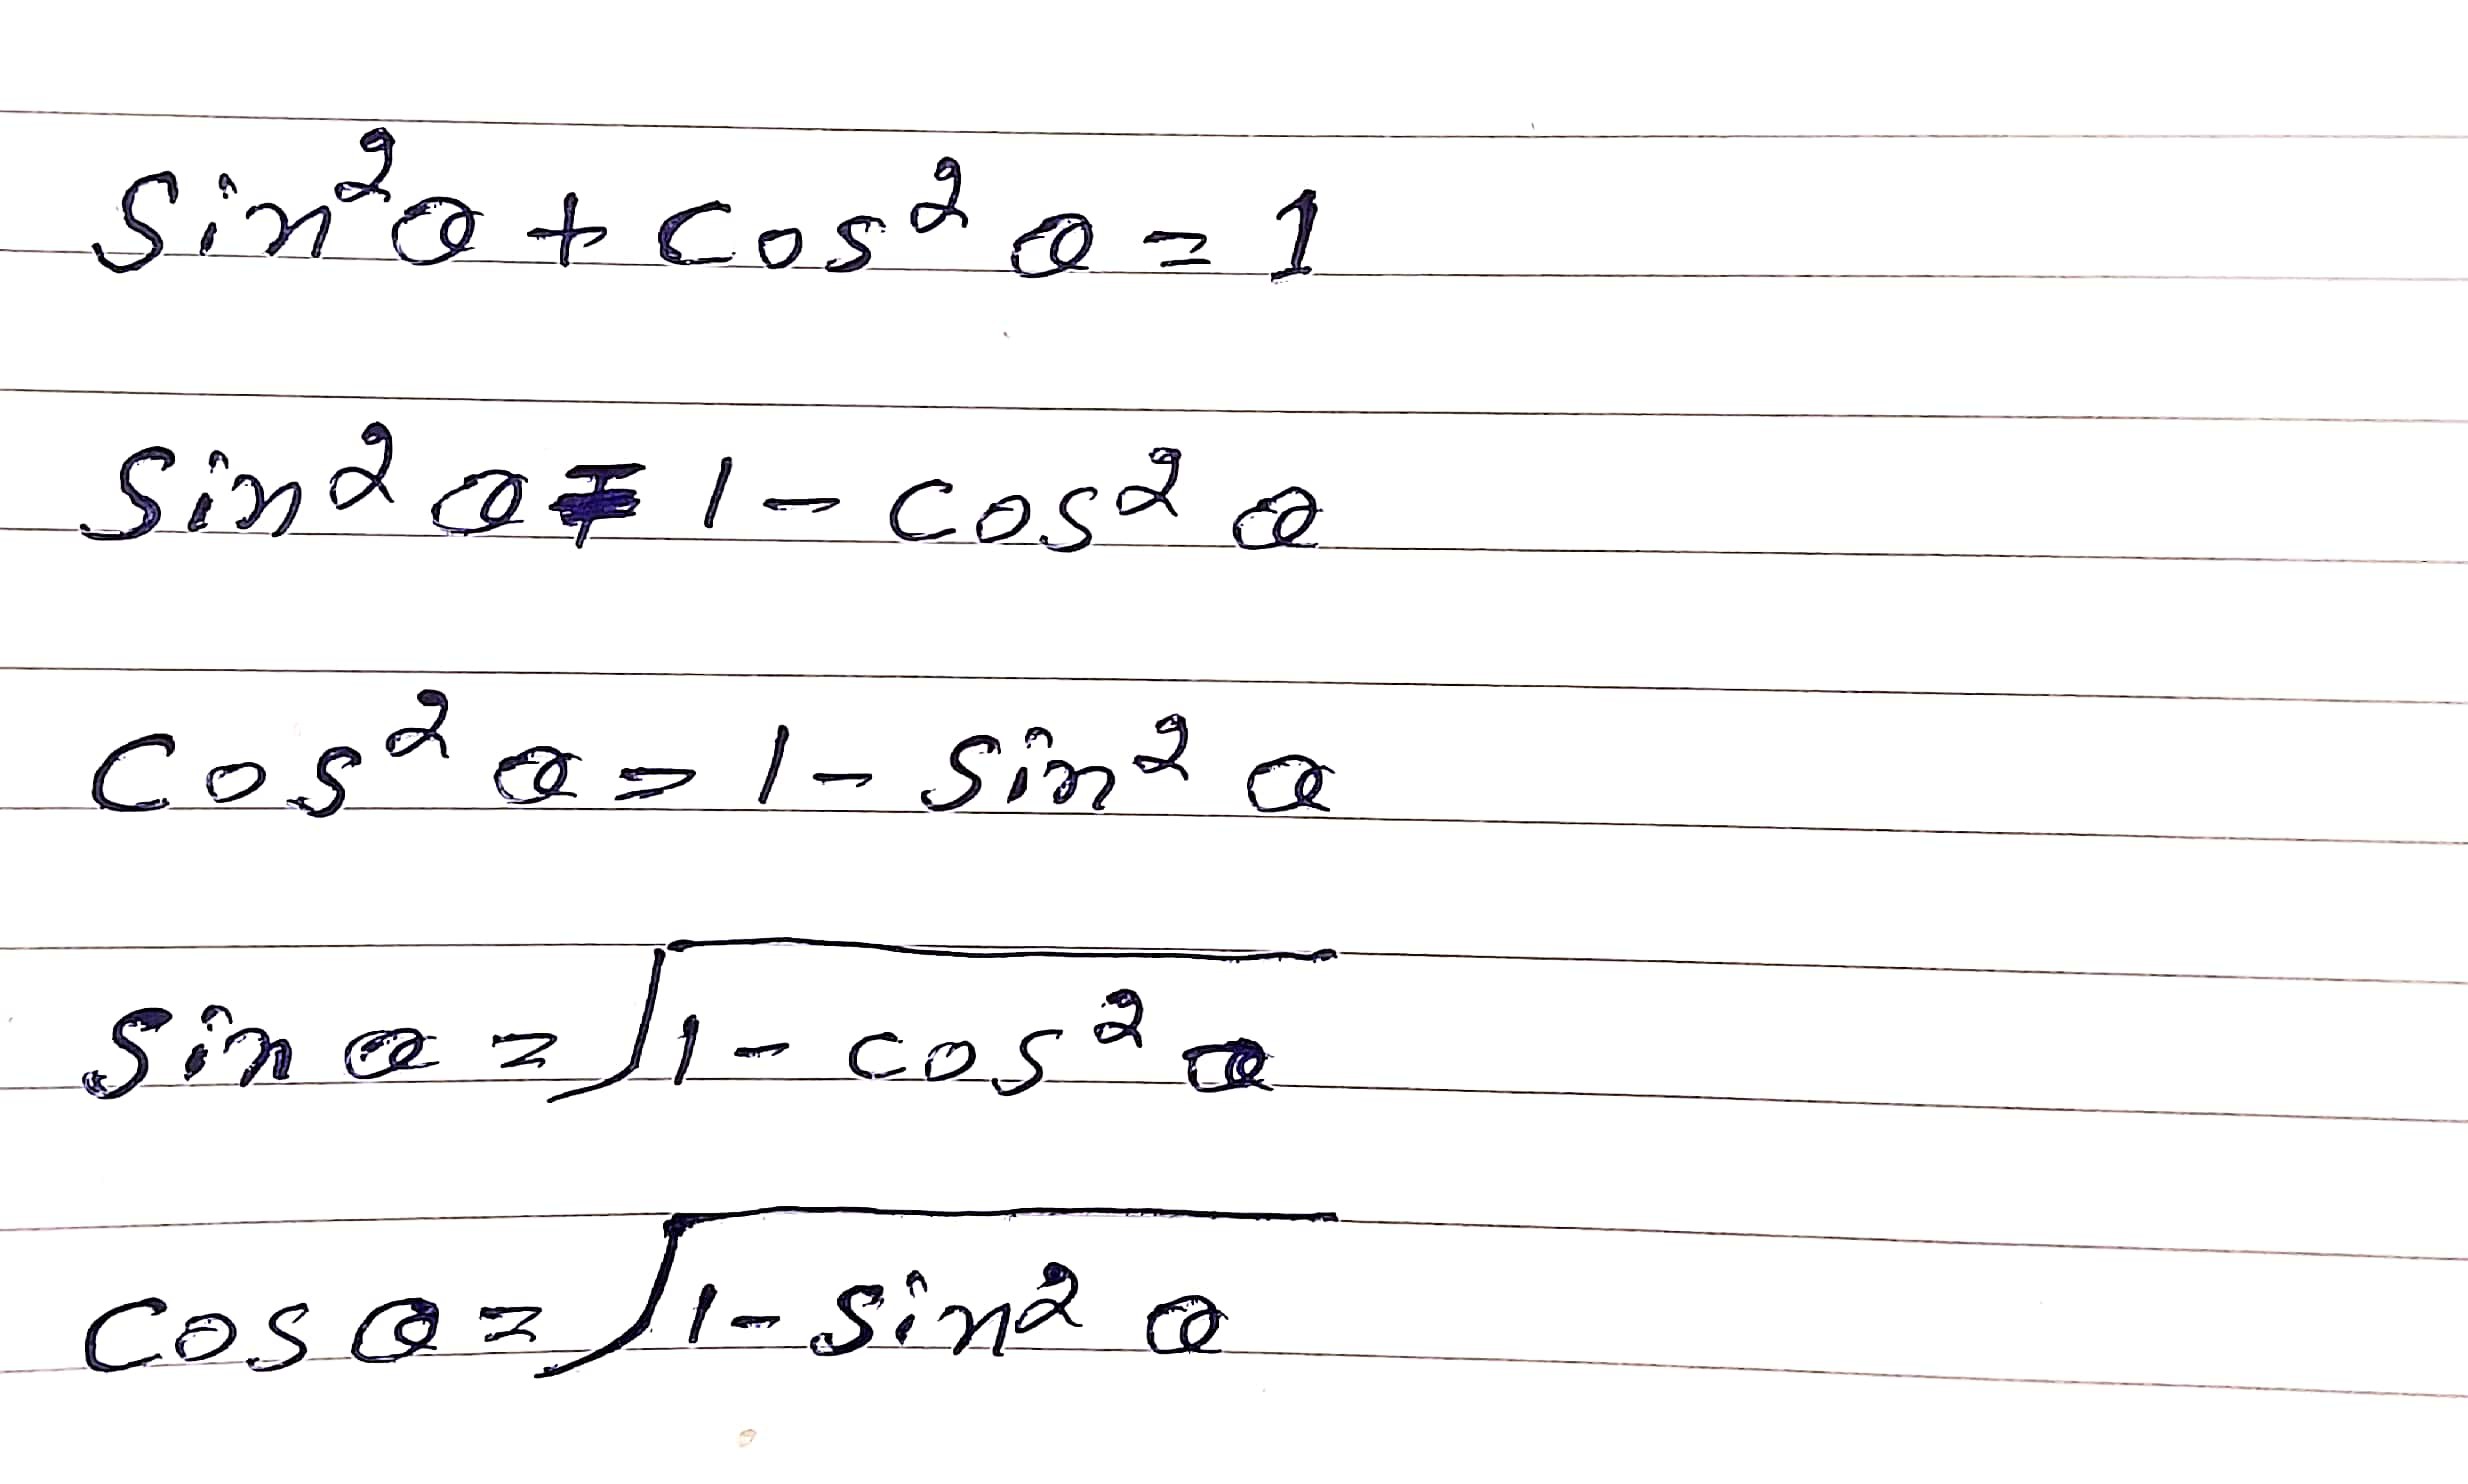 Sin²θ + Cos²θ = 1
Sin²θ = 1 - cos²θ
Cos²θ = 1 - Sin²θ
Sinθ = √1 - cos²θ
Cosθ = √1 - Sin²θ